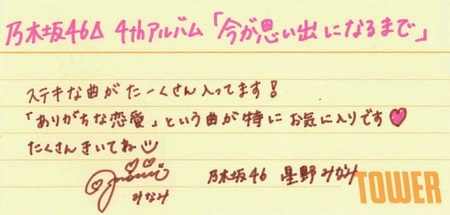 乃木坂46△ 4thアルバム「今が思い出になるまで」
ステキな曲がたーくさん入ってます！
「ありがちな恋愛」という曲が特にお気に入りです♡
たくさんきいてね
みなみ
乃木坂46 星野みなみ
TOWER